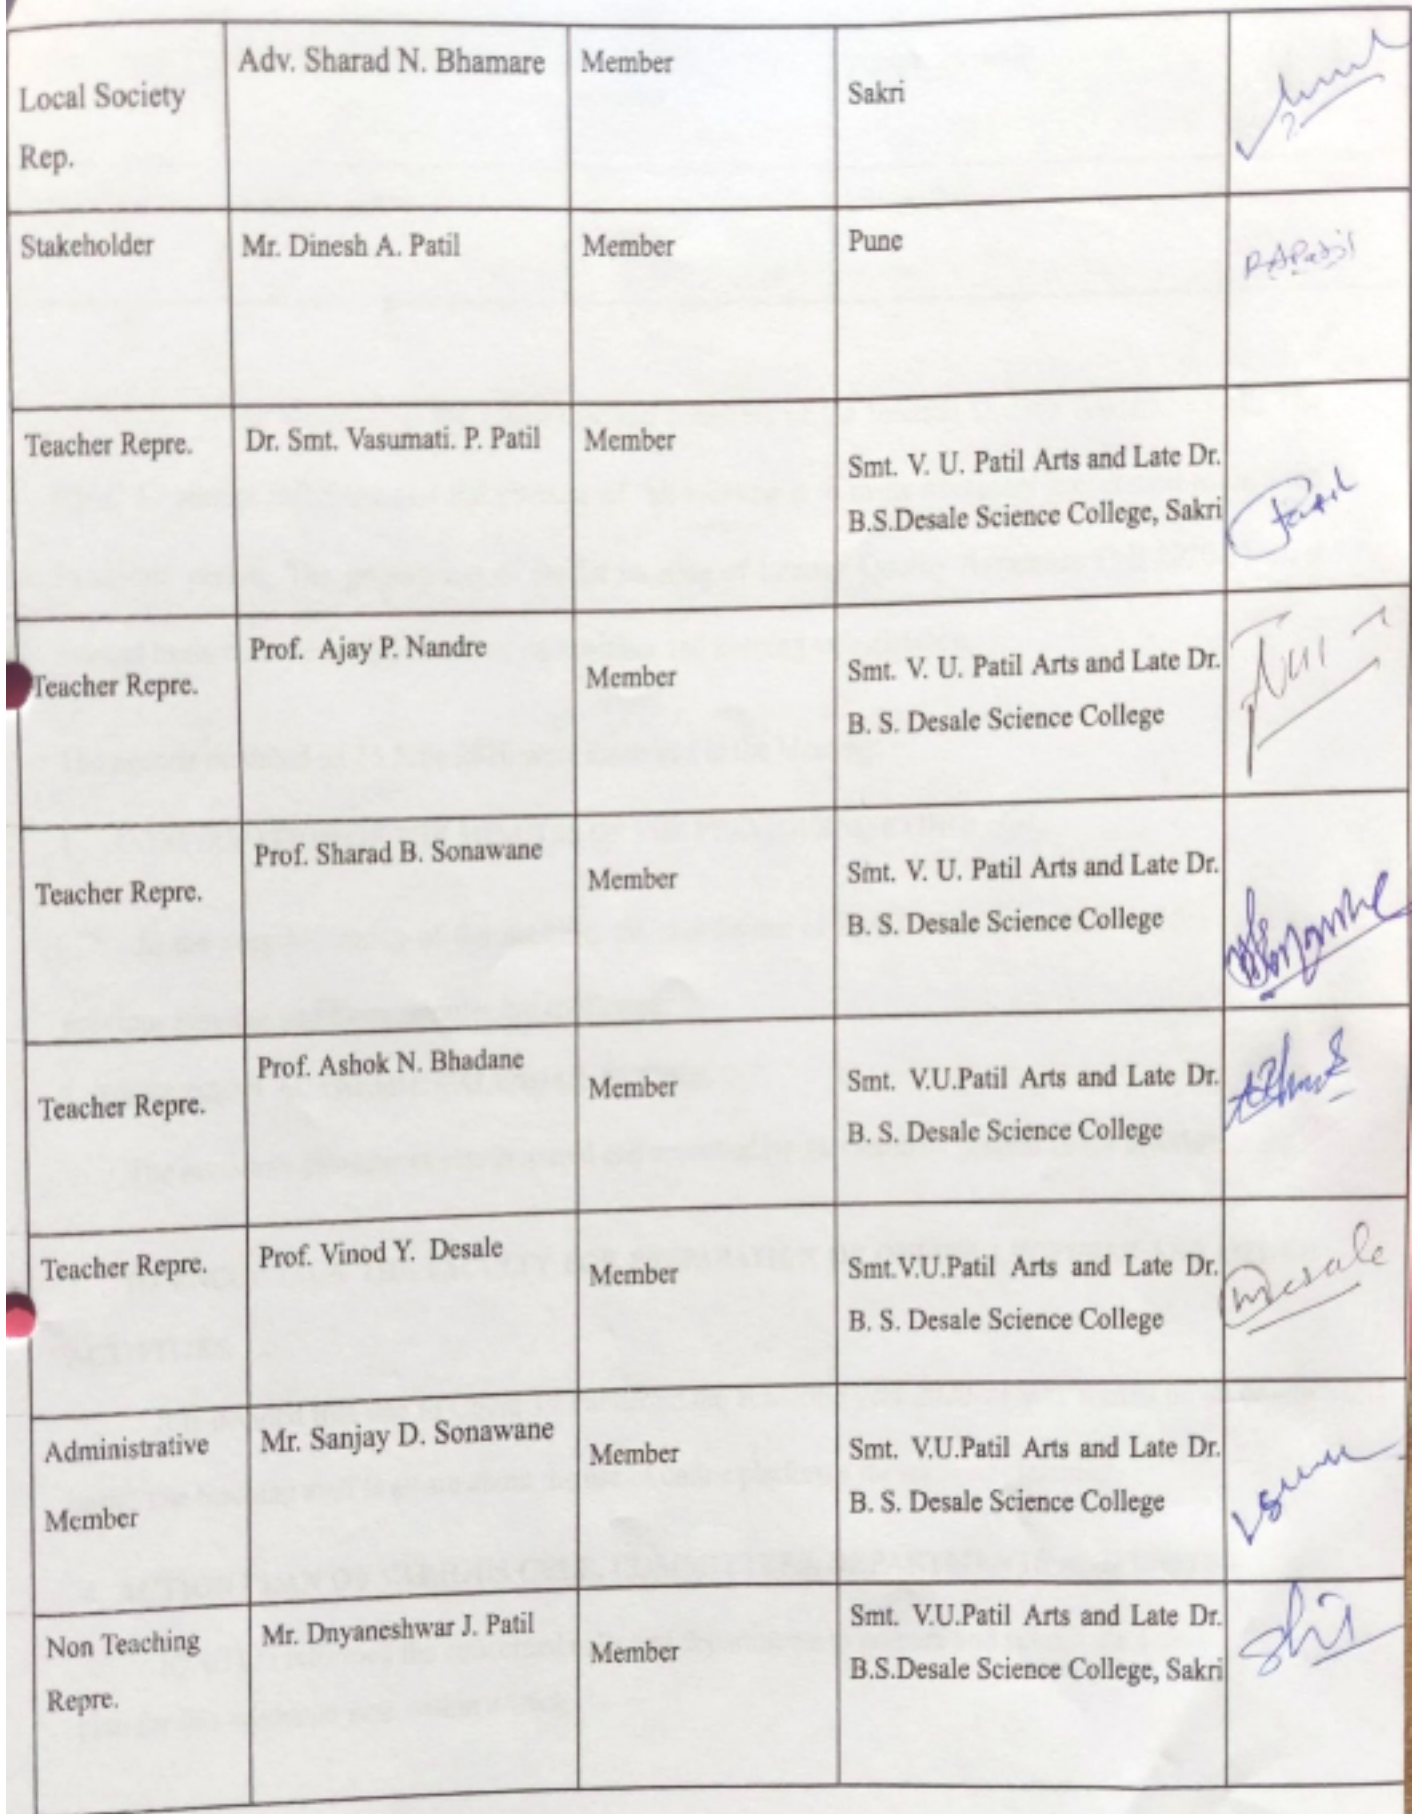 Local Society
Rep.
Adv. Sharad N. Bhamare
Member
Sakri
Stakeholder
Mr. Dinesh A. Patil
Member
Pune
Teacher Repre.
Dr. Smt. Vasumati. P. Patil
Member
Smt. V. U. Patil Arts and Late Dr.
B.S.Desale Science College, Sakri
Patil
Teacher Repre.
Prof. Ajay P. Nandre
Member
Smt. V. U. Patil Arts and Late Dr.
B. S. Desale Science College
Teacher Repre.
Prof. Sharad B. Sonawane
Member
Smt. V. U. Patil Arts and Late Dr.
B. S. Desale Science College
Teacher Repre.
Prof. Ashok N. Bhadane
Member
Smt. V.U.Patil Arts and Late Dr.
B. S. Desale Science College
Teacher Repre.
Prof. Vinod Y. Desale
Member
Smt.V.U.Patil Arts and Late Dr.
B. S. Desale Science College
Administrative
Member
Mr. Sanjay D. Sonawane
Member
Smt. V.U.Patil Arts and Late Dr.
B. S. Desale Science College
Non Teaching
Repre.
Mr. Dnyaneshwar J. Patil
Member
Smt. V.U.Patil Arts and Late Dr.
B.S.Desale Science College, Sakri